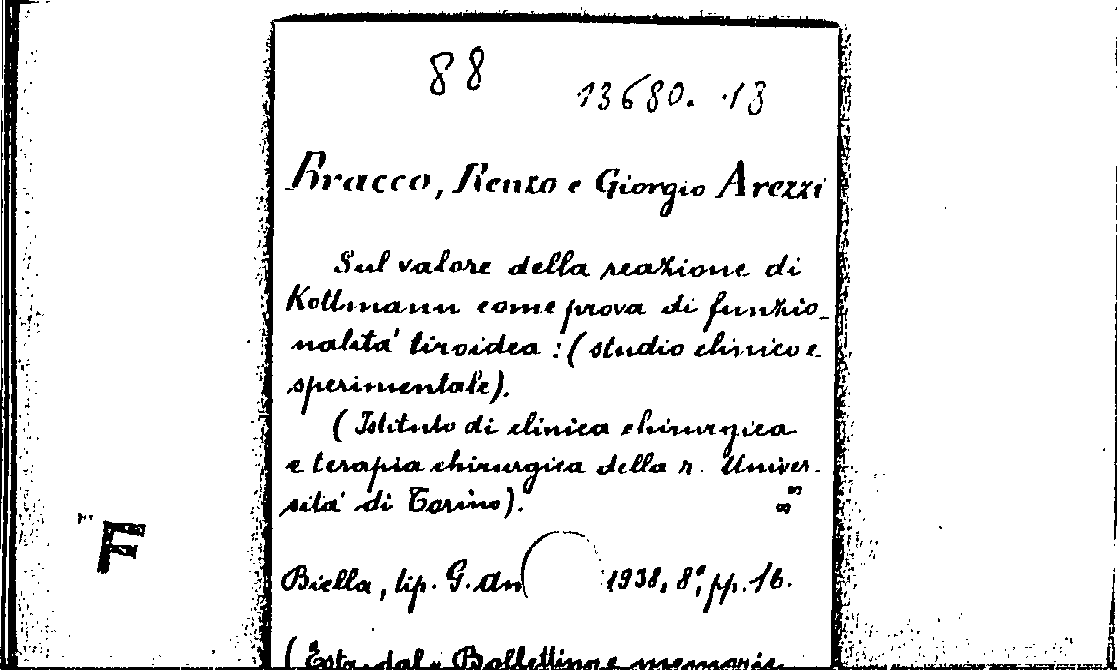 88
13680. 13
Bracco, Renzo e Giorgio Arezzi
Sul valore della reazione di
Kottmann come prova di funzio-
nalità tiroidea : ( studio clinico e
sperimentale).
( Istituto di clinica chirurgica
e terapia chirurgica della r. Univer-
sità di Torino).
Biella, tip. G. An 1938, 8°, pp. 16.
(Estr. dal « Bollettino e memorie
F